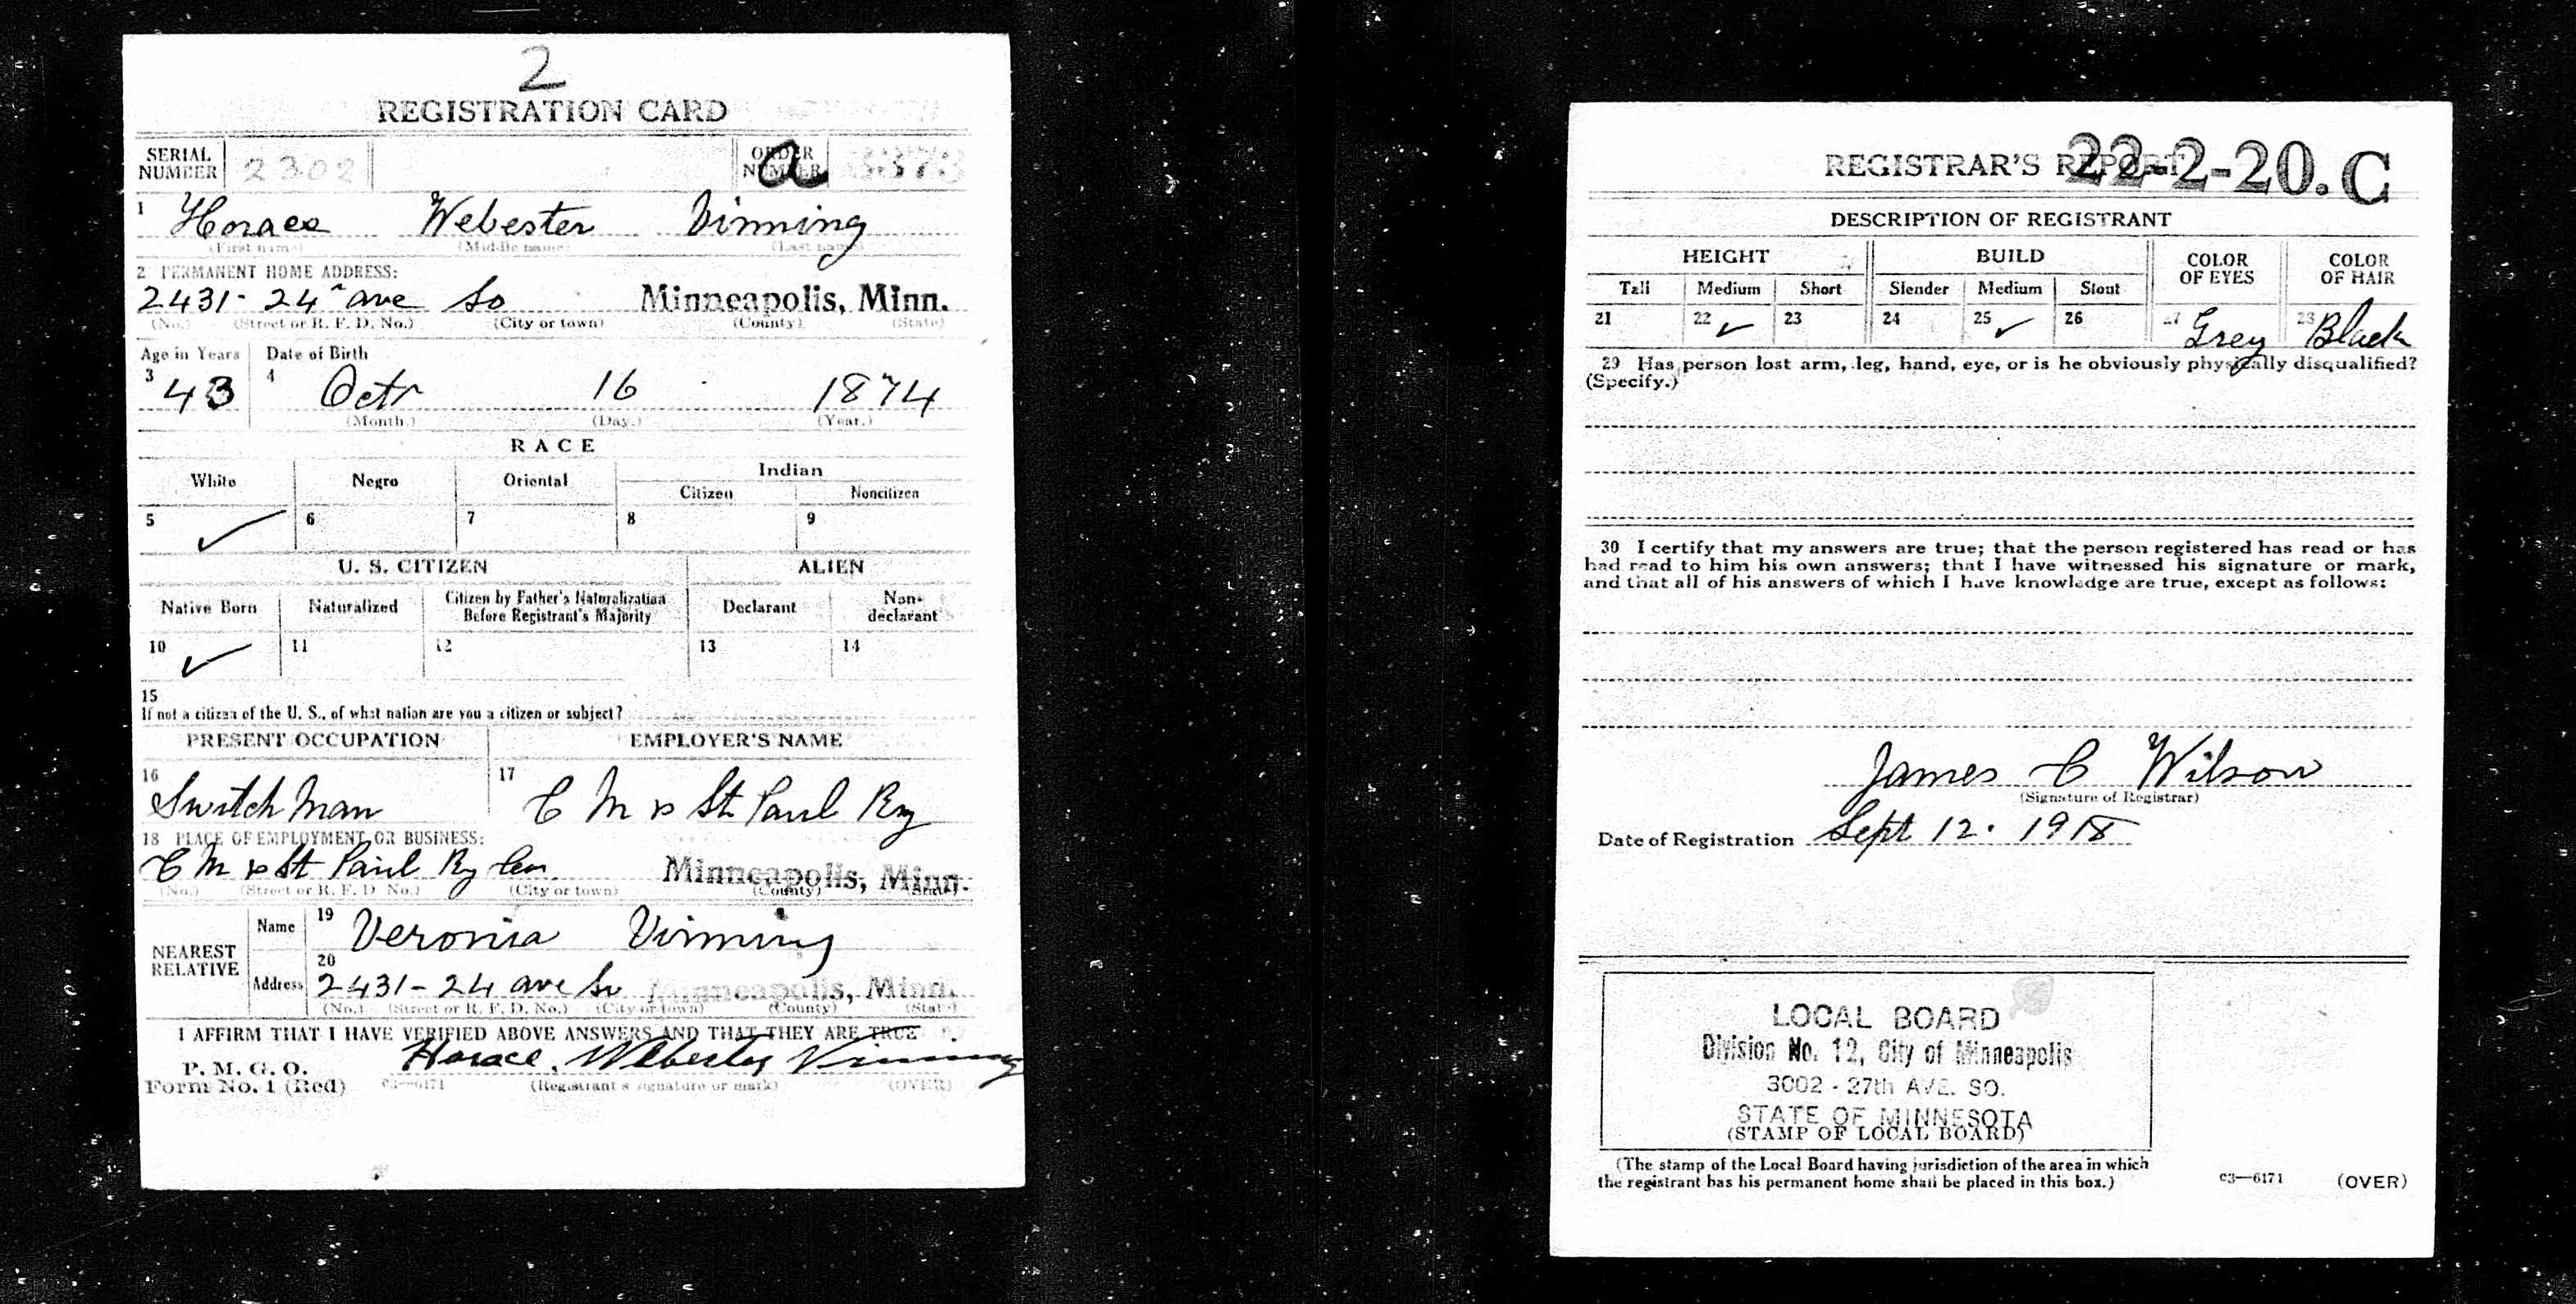 2
REGISTRATION CARD
SERIAL NUMBER 2302 ORDER NUMBER a 3373
1 Horace Webester Vinning
(First name) (Middle name) (Last name)
2 PERMANENT HOME ADDRESS:
2431- 24" ave So Minneapolis, Minn.
(No.) (Street or R. F. D. No.) (City or town) (County) (State)
Age in Years Date of Birth
3 43 4 Octr 16 1874
(Month.) (Day.) (Year.)
RACE
White Negro Oriental Indian
Citizen Noncitizen
5 ✓ 6 7 8 9
U. S. CITIZEN ALIEN
Native Born Naturalized Citizen by Father's Naturalization Before Registrant's Majority Declarant Non-declarant
10 ✓ 11 12 13 14
15
If not a citizen of the U. S., of what nation are you a citizen or subject?
PRESENT OCCUPATION EMPLOYER'S NAME
16 Switch Man 17 C M & St Paul Ry
18 PLACE OF EMPLOYMENT OR BUSINESS:
C M & St Paul Ry Minneapolis, Minn.
(No.) (Street or R. F. D No.) (City or town) (County) (State)
NEAREST RELATIVE
Name 19 Veronia Vinning
20
Address 2431- 24 ave So Minneapolis, Minn.
(No.) (Street or R. F. D. No.) (City or town) (County) (State)
I AFFIRM THAT I HAVE VERIFIED ABOVE ANSWERS AND THAT THEY ARE TRUE
P. M. G. O. Horace. Webester Vinning
Form No. 1 (Red) c3—6171 (Registrant's signature or mark) (OVER)
REGISTRAR'S REPORT 22-2-20. C
DESCRIPTION OF REGISTRANT
HEIGHT BUILD COLOR OF EYES COLOR OF HAIR
Tall Medium Short Slender Medium Stout
21 22 ✓ 23 24 25 ✓ 26 27 Grey 28 Black
29 Has person lost arm, leg, hand, eye, or is he obviously physically disqualified?
(Specify.)
30 I certify that my answers are true; that the person registered has read or has
had read to him his own answers; that I have witnessed his signature or mark,
and that all of his answers of which I have knowledge are true, except as follows:
James C Wilson
(Signature of Registrar)
Date of Registration Sept 12. 1918
LOCAL BOARD
Division No. 12, City of Minneapolis
3002 - 27th AVE. SO.
STATE OF MINNESOTA
(STAMP OF LOCAL BOARD)
(The stamp of the Local Board having jurisdiction of the area in which
the registrant has his permanent home shall be placed in this box.)
c3—6171 (OVER)